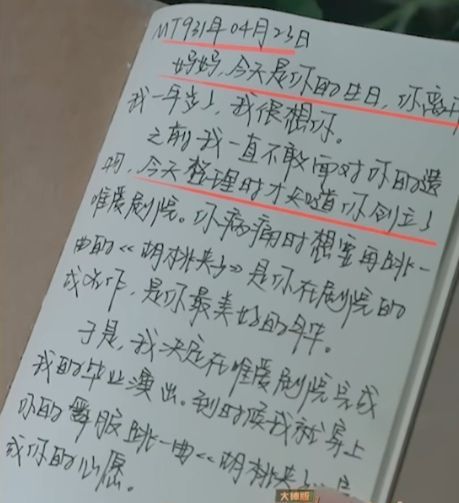 MT931年04月23日
妈妈,今天是你的生日,你离开
我一年多了,我很想你。
之前我一直不敢面对你的遗
物,今天整理时才知道你创立了
唯爱剧院。你病痛时想要再跳一
曲的《胡桃夹子》是你在剧院的
成名作,是你最美好的年华。
于是,我决定在唯爱剧院完成
我的毕业演出。到时候我就穿上
你的舞服跳一曲《胡桃夹子》
成你的心愿。
大神版